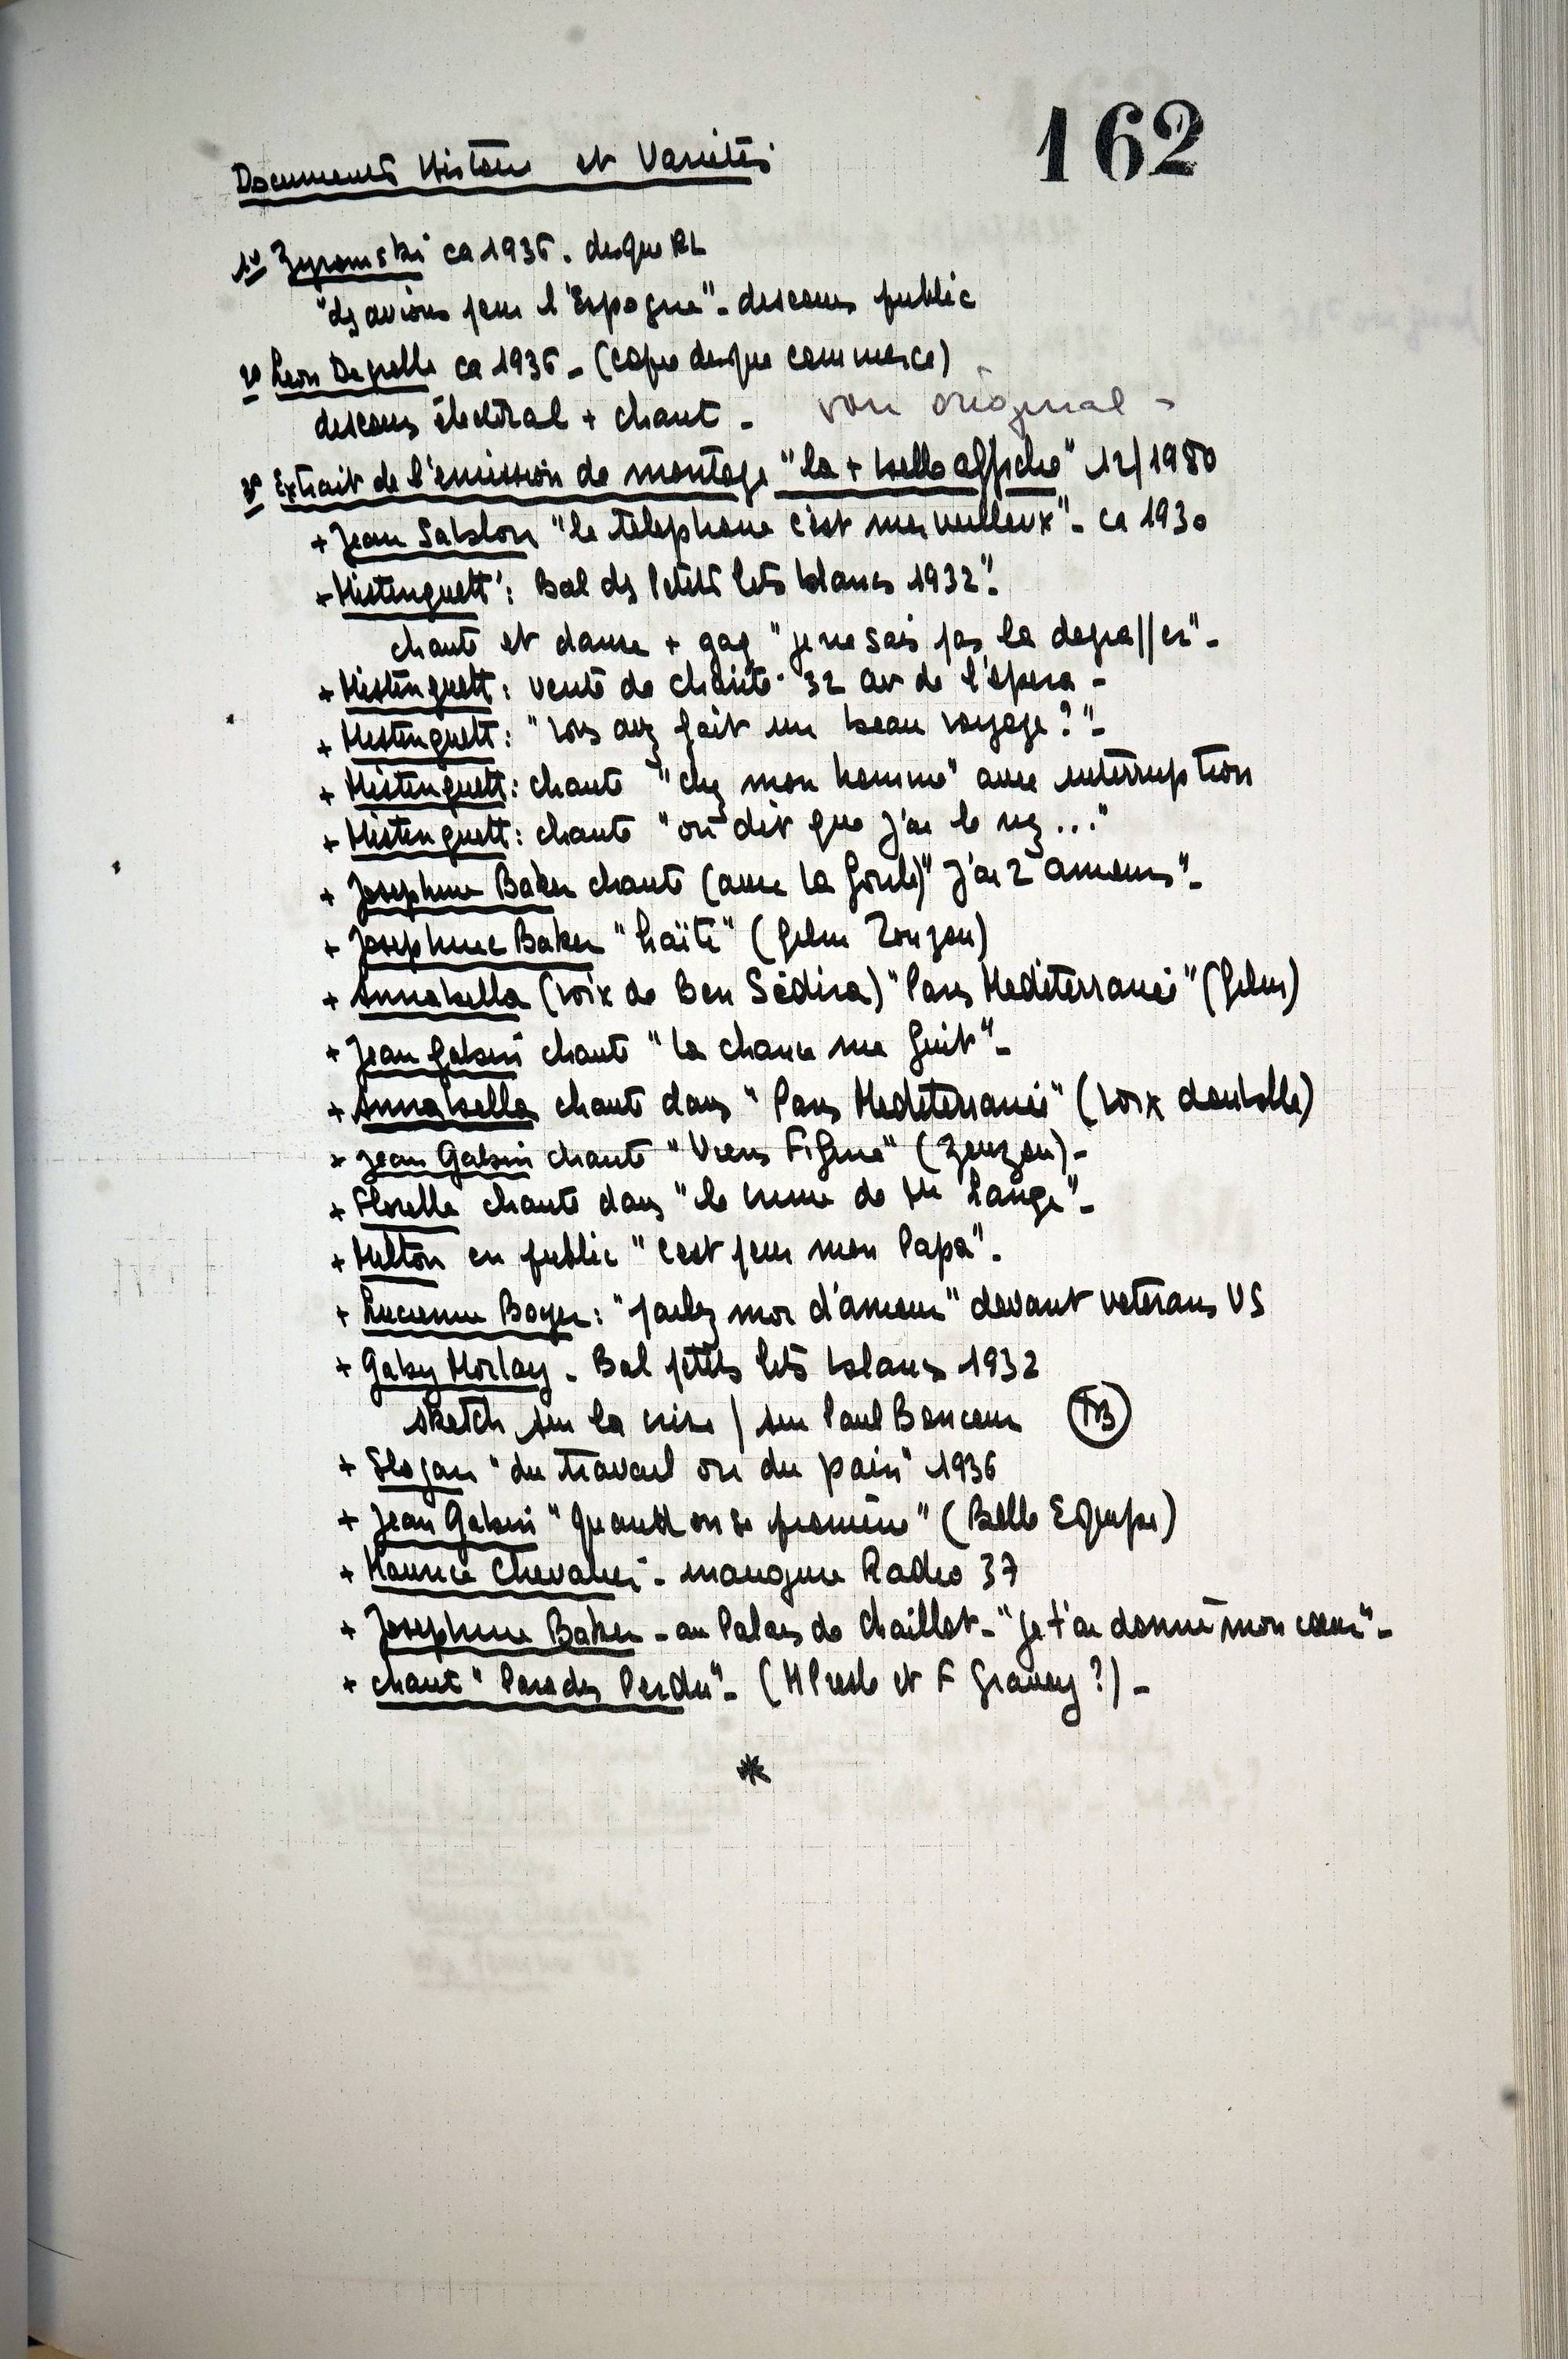 162
Documents Histoire et Variétés
1° Zyromski ca 1936. disque RL
"des avions pour l'Espagne" - discours public
2° Léon Degrelle ca 1936 - (copie disque commerce)
discours électoral + chant - voir original -
3° Extrait de l'émission de montage "la + belle affiche" 12/1980
+ Jean Sablon "le telephone c'est merveilleux" - ca 1930
+ Mistinguett : Bal ds Petits lits blancs 1932" -
chante et danse + gag "je ne sais pas la degra//er" -
+ Mistinguett : vente de charité - 32 av de l'opera -
+ Mistinguett : "vous avez fait un beau voyage ?" -
+ Mistinguett : chante "chez mon homme" avec interruption
+ Mistinguett : chante "on dit que j'ai le nez ..."
+ Josephine Baker chante (avec la foule) "J'ai 2 amours" -
+ Josephine Baker "haïti" (film Zouzou)
+ Annabella (voix de Ben Sédira) "Paris Mediterranée" (film)
+ Jean Gabin chante "la chance me fuit" -
+ Annabella chante dans "Paris Mediterranée" (voix doublée)
+ Jean Gabin chante "Viens Fifine" (Zouzou) -
+ Florelle chante dans "le crime de Mr Lange" -
+ Milton en public "c'est pour mon Papa" -
+ Lucienne Boyer : "parlez moi d'amour" devant veterans US
+ Gaby Morlay - Bal petits lits blancs 1932
sketch sur la crise / sur Paul Boncour TB
+ Slogan "du travail ou du pain" 1936
+ Jean Gabin "Quand on se promène" (Belle Equipe)
+ Maurice Chevalier - inaugure Radio 37
+ Josephine Baker - au Palais de Chaillot - "je t'ai donné mon coeur" -
+ chant "Paradis Perdu" - (M Presle et F Gravey ?) -
*